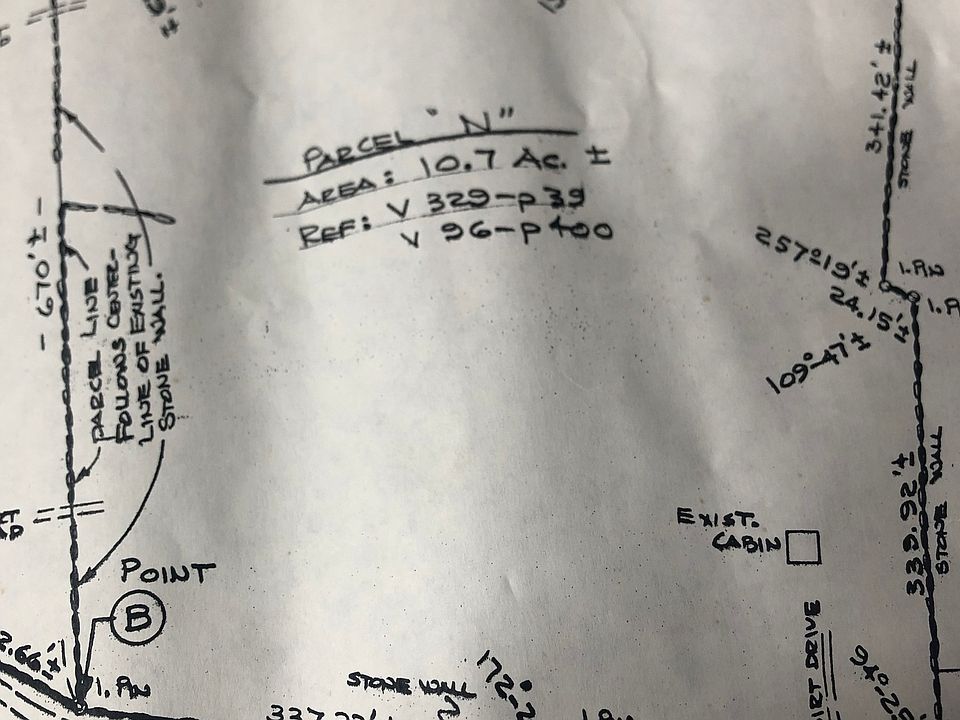 PARCEL "N"
AREA: 10.7 AC. ±
REF: V 329-P 39
V 96-P 400
- 670'± -
PARCEL LINE
FOLLOWS CENTER-
LINE OF EXISTING
STONE WALL.
341.42'±
STONE WALL
257°19'±
I. PIN
24.15'±
109°-47'±
339.92'±
STONE WALL
EXIST.
CABIN
POINT
B
I. PIN
STONE WALL